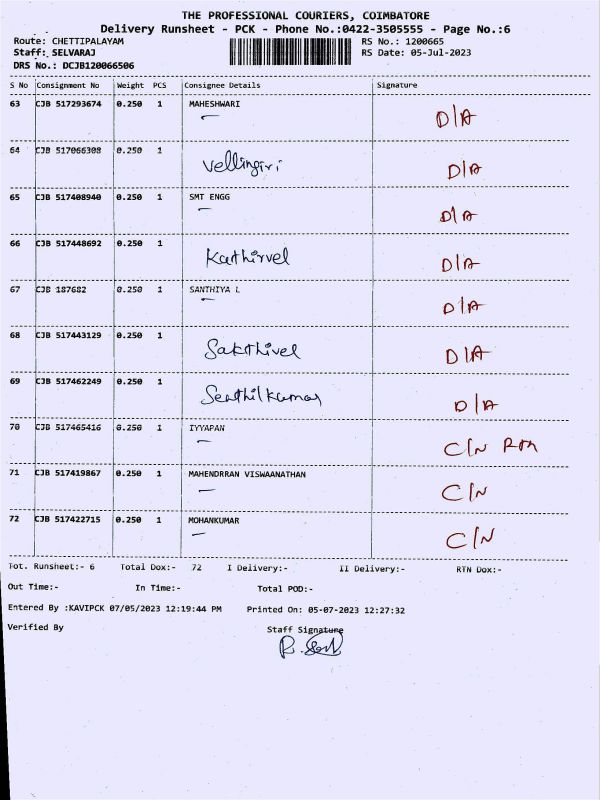 THE PROFESSIONAL COURIERS, COIMBATORE
Delivery Runsheet - PCK - Phone No.:0422-3505555 - Page No.:6
Route: CHETTIPALAYAM RS No.: 1200665
Staff: SELVARAJ RS Date: 05-Jul-2023
DRS No.: DCJB120066506
S No Consignment No Weight PCS Consignee Details Signature
63 CJB 517293674 0.250 1 MAHESHWARI D/A
64 CJB 517066308 0.250 1 Vellingiri D/A
65 CJB 517408940 0.250 1 SMT ENGG D/A
66 CJB 517448692 0.250 1 Kathirvel D/A
67 CJB 187682 0.250 1 SANTHIYA L D/A
68 CJB 517443129 0.250 1 Sakthivel D/A
69 CJB 517462249 0.250 1 Senthilkumar D/A
70 CJB 517465416 0.250 1 IYYAPAN C/N Rtn
71 CJB 517419867 0.250 1 MAHENDRRAN VISWAANATHAN C/N
72 CJB 517422715 0.250 1 MOHANKUMAR C/N
Tot. Runsheet:- 6 Total Dox:- 72 I Delivery:- II Delivery:- RTN Dox:-
Out Time:- In Time:- Total POD:-
Entered By :KAVIPCK 07/05/2023 12:19:44 PM Printed On: 05-07-2023 12:27:32
Verified By Staff Signature